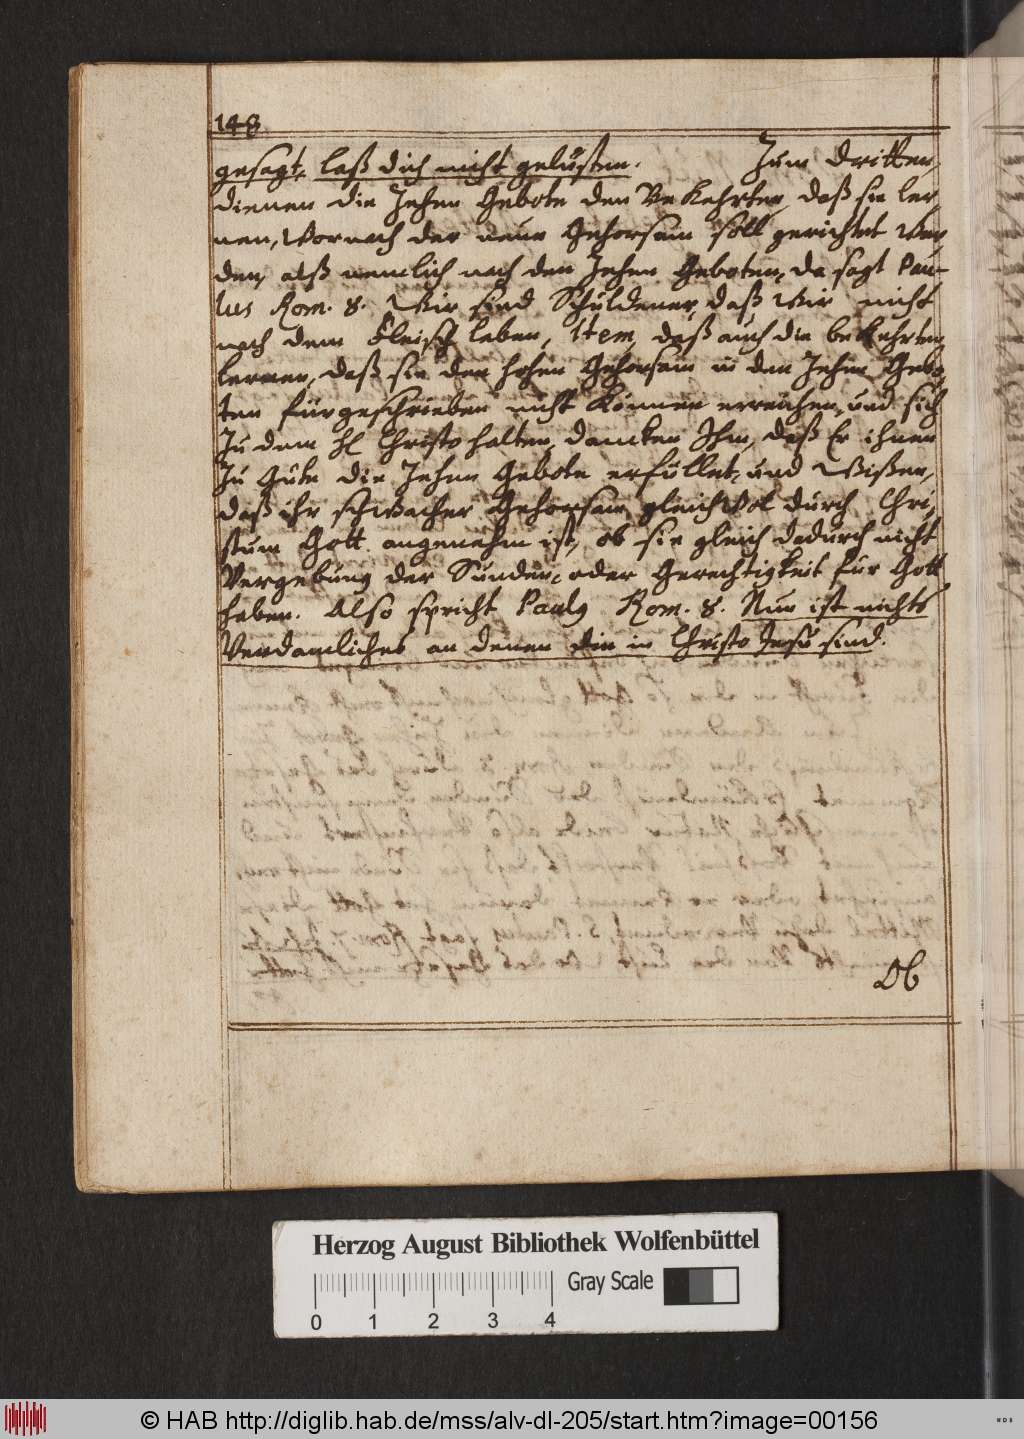 148
gesagt, laß dich nicht gelüsten. Zum dritten,
dienen die Zehen Gebote den Bekehrten, daß sie ler,
nen, Wornach der neue Gehorsam soll gerichtet Wer,
den, alß nemlich nach den Zehen Geboten, da sagt Pau-
lus Rom. 8. Wir sind Schuldener, daß Wir nicht
nach dem Fleisch leben, Item, daß auch die bekehrten
lernen, daß sie den hohen Gehorsam in den Zehen Gebo,
ten fürgeschrieben nicht Können erreichen, und sich
Zu dem Christo halten, dancken Ihm, daß Er ihnen
Zu Gute die Zehen Gebote erfüllet, und Wißen,
daß ihr schwacher Gehorsam gleichwol durch Chri,
stum Gott angenehm ist, ob sie gleich dadurch nicht
Vergebung der Sünden, oder Gerechtigkeit für Gott
haben. Also spricht Paulus Rom. 8. Nun ist nichts
Verdamliches an denen die in Christo Jesu sind.
Ob
Herzog August Bibliothek Wolfenbüttel
Gray Scale
0 1 2 3 4
© HAB http://diglib.hab.de/mss/alv-dl-205/start.htm?image=00156